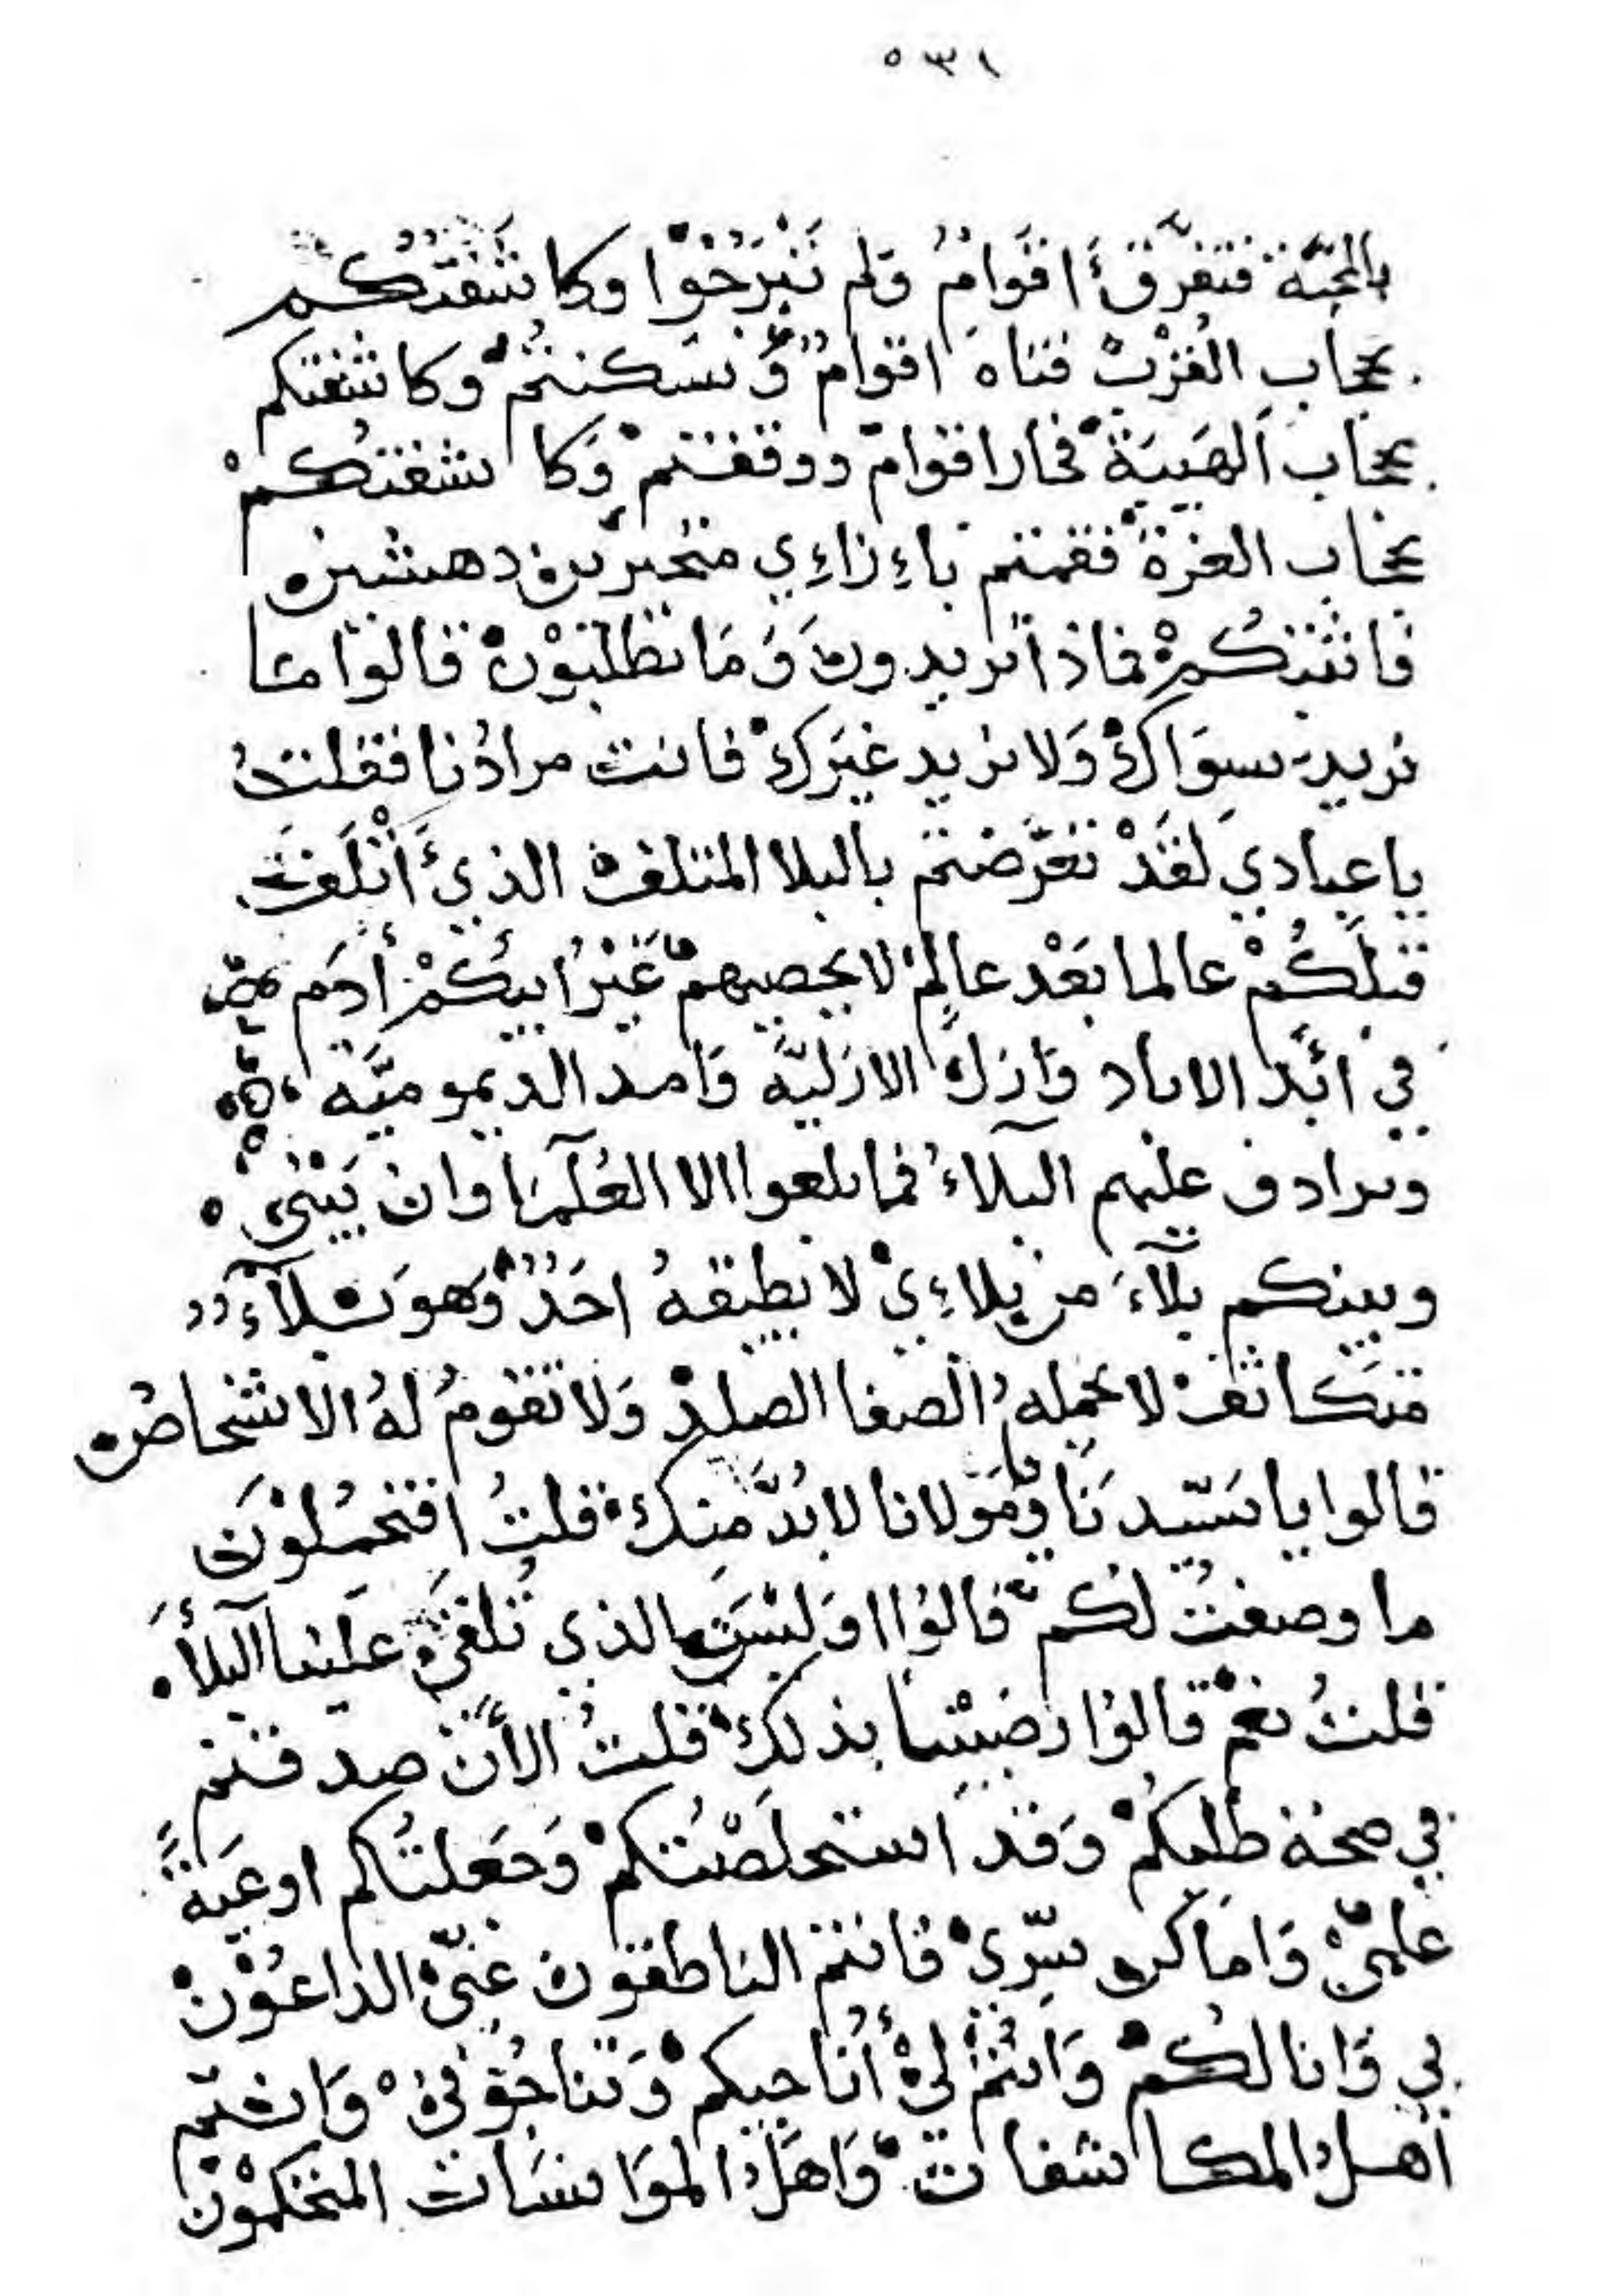 ٥٣١
بالمحبّة فتفرّق أقوامٌ ولم تَبْرَحُوْا وكاشَفتُكم
بحجابِ القُرْبْ فتاهَ اقوامٌ وَسَكنتُمْ وكاشفتكم
بحجاب الهَيبَةْ فحار اقوامٌ ووقفتمْ وَكاشفتكُمْ
بحجاب العزة فقمتم باءِزاءِي متحيرين دهشين
فانشدتكُمْ فماذا تريدون وَمَا تطلبَوْنْ قالوا مَا
نريد سِوَاكْ وَلا نريد غيَركْ فانت مرادُنا فقلتُ
يا عبادي لقَدْ تعَرَّضتم بالبلا المتلف الذي أَتْلَفتُ
قبلَكُمْ عالما بَعْد عالِمٍ لا يحصيهمْ غَيْرُ ابيكُمْ أدَم
في ابَد الاباد وَازل الازليَّه وَامد الديموميَّه
وترادف عليهم البلاءُ فما بلغوا الا العُلَمَا وان بَيْنيْ
وبينكم بلآءَ من بلاءِيْ لا يطيقهُ احَدٌ وَهوَ بلآءٌ
متكاثفْ لا يحملهُ الصفا الصلدْ وَلا تقومُ لهُ الاشخاصُ
قالوا يا سَيّدنَا وَمَوْلانا لا بُدَّ مِنكْ قلتُ افتحمُلوْنَ
ما وصفتُ لكم قالوْا اوَليْسَ الذي تُلقيْ علينا البلأَ
قلتُ نعمْ قالوْا رضيْنا بذلكْ قلتُ الأَن صدقتم
في صحة طلبكُمْ وَقدَ استخلَصْتُكمْ وَجَعلتُكم اوعَيةً
علميْ وَامَاكن سِرّيْ فانتم الناطقون عنّيْ الداعُوْنْ
بي وَانا لكُمْ وَانتُمْ ليْ أُناجيكمْ وَتناجُوْنيْ وَانتمْ
أهلُ المكاشفاتْ وَاهلُ المؤانسَات المتحكموْن